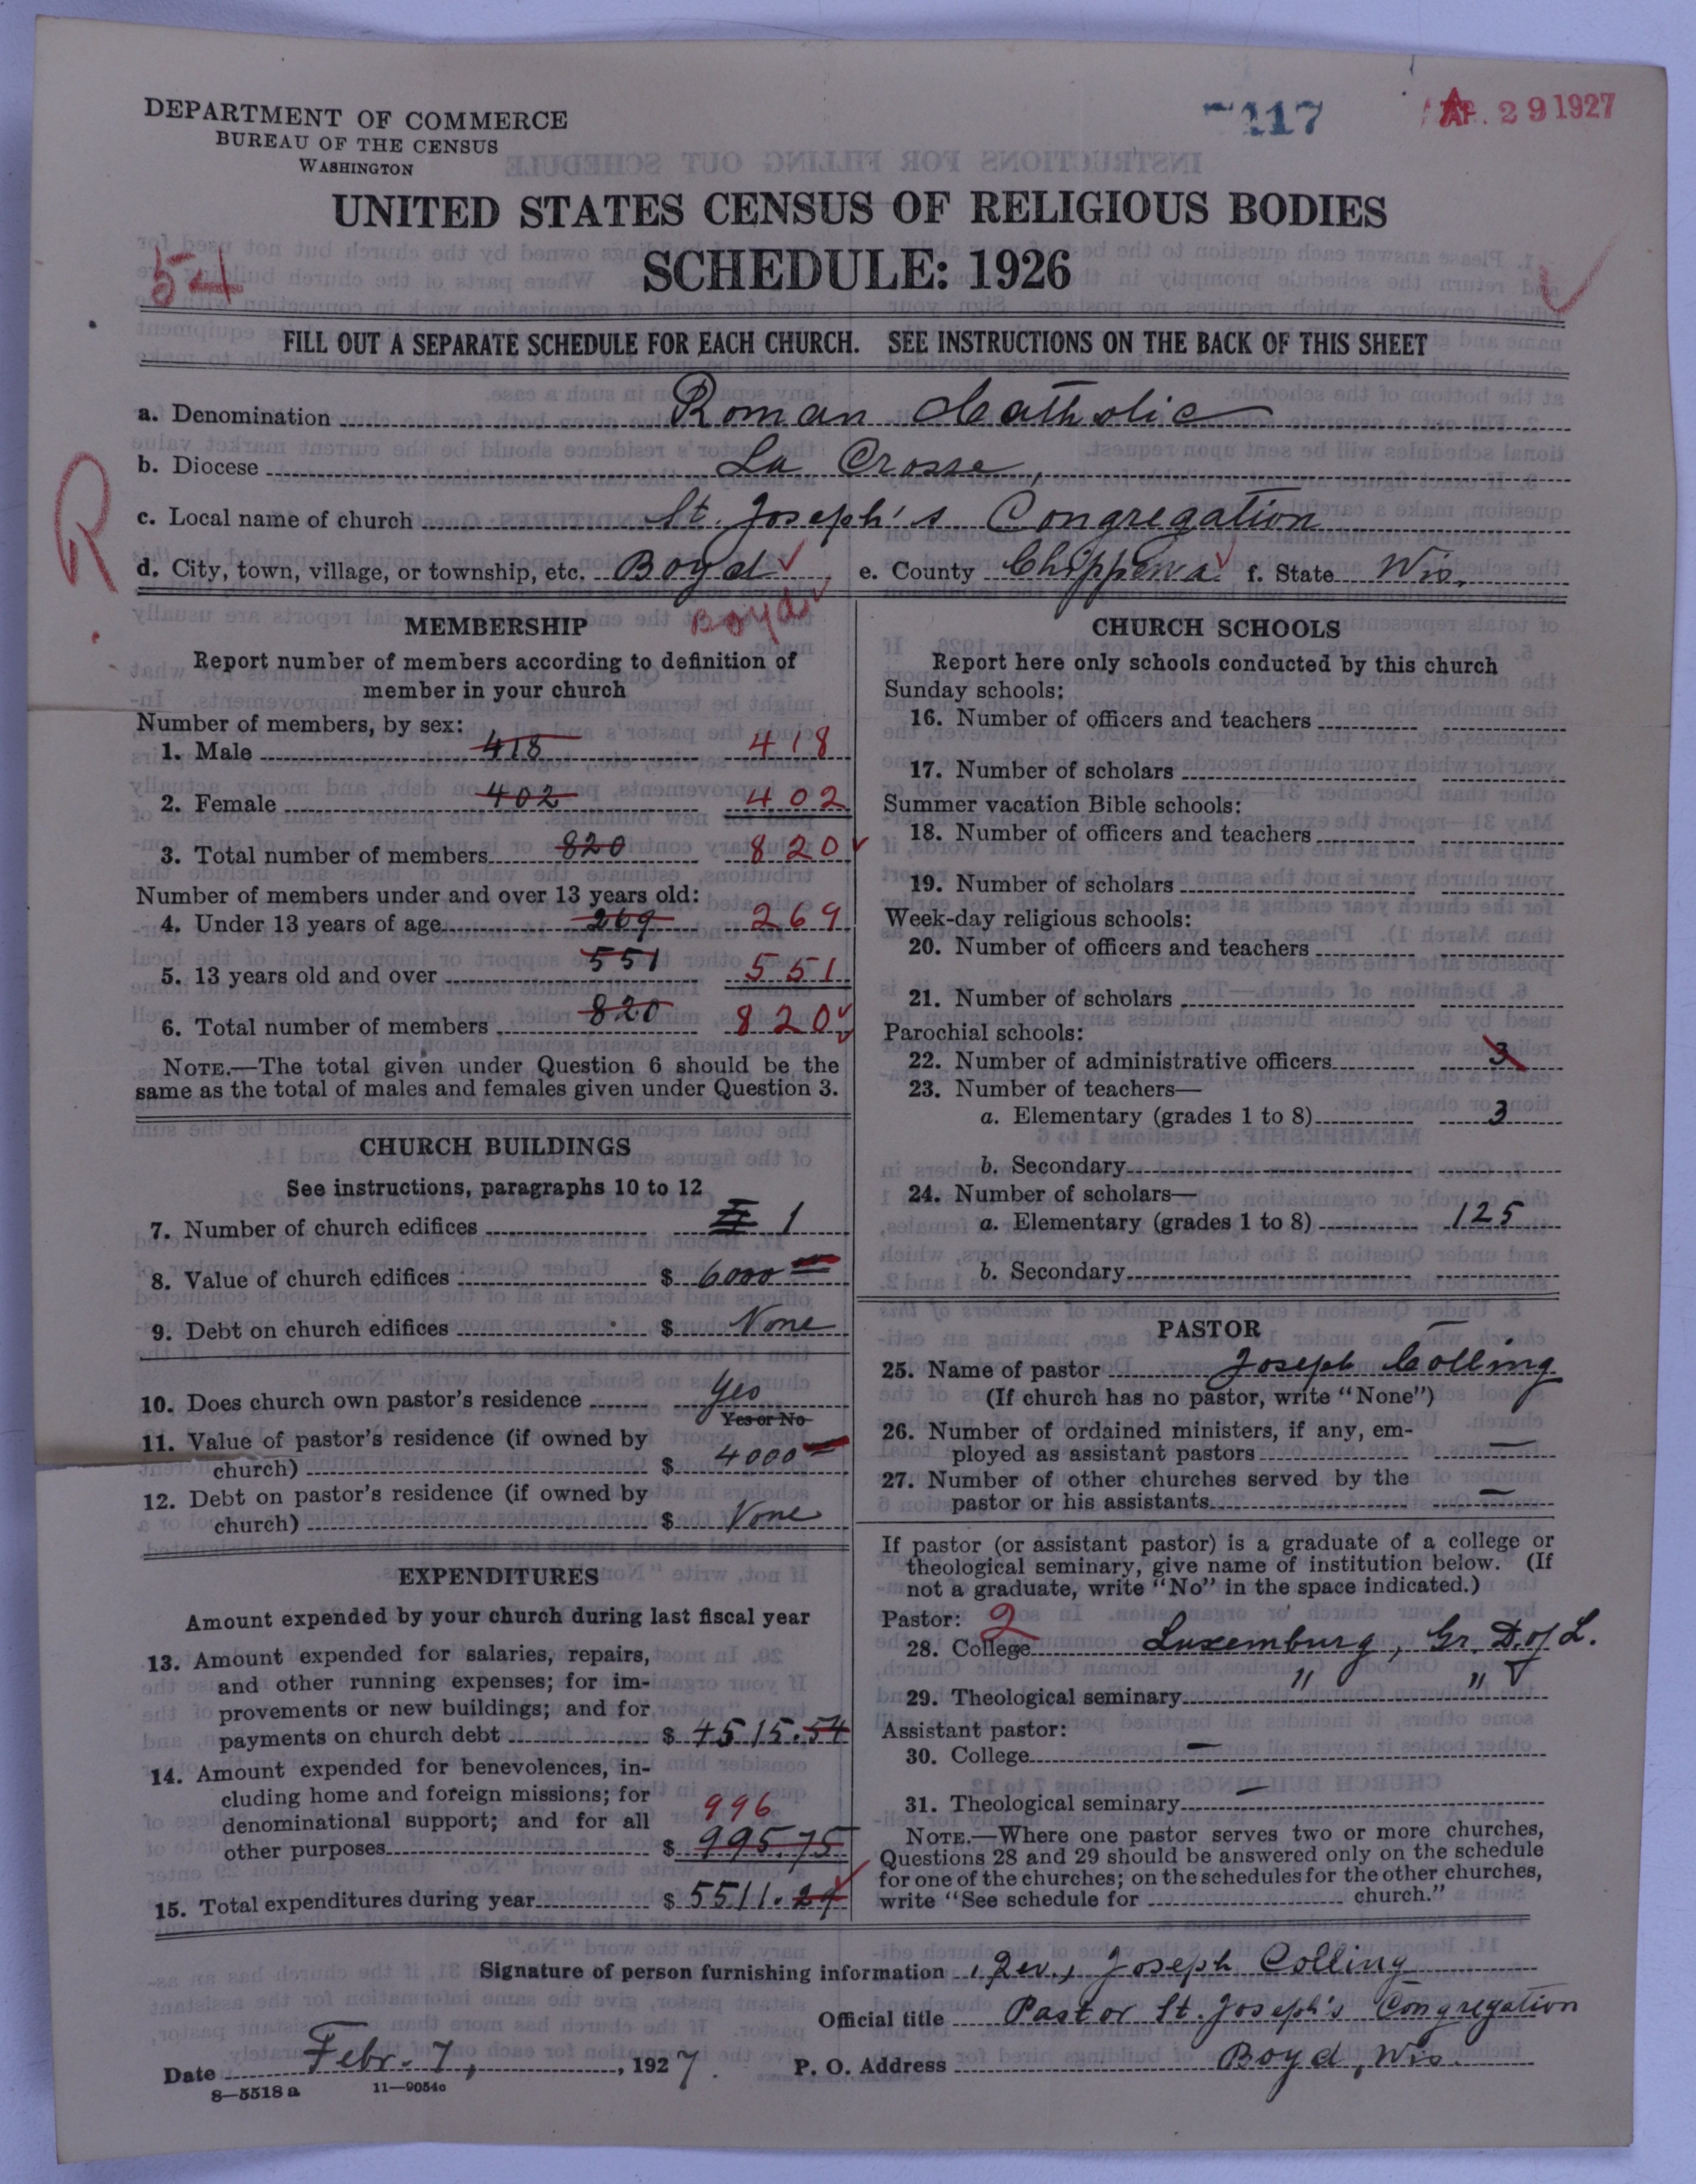 DEPARTMENT OF COMMERCE
BUREAU OF THE CENSUS
WASHINGTON
APR. 29 1927
UNITED STATES CENSUS OF RELIGIOUS BODIES
54
SCHEDULE: 1926
FILL OUT A SEPARATE SCHEDULE FOR EACH CHURCH. SEE INSTRUCTIONS ON THE BACK OF THIS SHEET
a. Denomination Roman Catholic
b. Diocese La Crosse,
c. Local name of church St. Joseph's Congregation
R
d. City, town, village, or township, etc. Boyd e. County Chippewa f. State Wis.
Boyd
MEMBERSHIP
Report number of members according to definition of
member in your church
Number of members, by sex:
1. Male 418 418
2. Female 402 402
3. Total number of members 820 820
Number of members under and over 13 years old:
4. Under 13 years of age 269 269
5. 13 years old and over 551 551
6. Total number of members 820 820
NOTE.—The total given under Question 6 should be the
same as the total of males and females given under Question 3.
CHURCH BUILDINGS
See instructions, paragraphs 10 to 12
7. Number of church edifices 1
8. Value of church edifices $ 6000
9. Debt on church edifices $ None
10. Does church own pastor's residence Yes
Yes or No
11. Value of pastor's residence (if owned by
church) $ 4000
12. Debt on pastor's residence (if owned by
church) $ None
EXPENDITURES
Amount expended by your church during last fiscal year
13. Amount expended for salaries, repairs,
and other running expenses; for im-
provements or new buildings; and for
payments on church debt $ 4515.54
14. Amount expended for benevolences, in-
cluding home and foreign missions; for
denominational support; and for all 996
other purposes $ 995.75
15. Total expenditures during year $ 5511.29
CHURCH SCHOOLS
Report here only schools conducted by this church
Sunday schools:
16. Number of officers and teachers
17. Number of scholars
Summer vacation Bible schools:
18. Number of officers and teachers
19. Number of scholars
Week-day religious schools:
20. Number of officers and teachers
21. Number of scholars
Parochial schools:
22. Number of administrative officers 3
23. Number of teachers—
a. Elementary (grades 1 to 8) 3
b. Secondary
24. Number of scholars—
a. Elementary (grades 1 to 8) 125
b. Secondary
PASTOR
25. Name of pastor Joseph Colling
(If church has no pastor, write "None")
26. Number of ordained ministers, if any, em-
ployed as assistant pastors —
27. Number of other churches served by the
pastor or his assistants —
If pastor (or assistant pastor) is a graduate of a college or
theological seminary, give name of institution below. (If
not a graduate, write "No" in the space indicated.)
Pastor: 2
28. College Luxemburg, Gr. D. of L.
29. Theological seminary " "
Assistant pastor:
30. College —
31. Theological seminary —
NOTE.—Where one pastor serves two or more churches,
Questions 28 and 29 should be answered only on the schedule
for one of the churches; on the schedules for the other churches,
write "See schedule for church."
Signature of person furnishing information Rev. Joseph Colling
Official title Pastor St. Joseph's Congregation
Date Febr. 7, 1927. P. O. Address Boyd, Wis.
8—5518 a 11—9054c